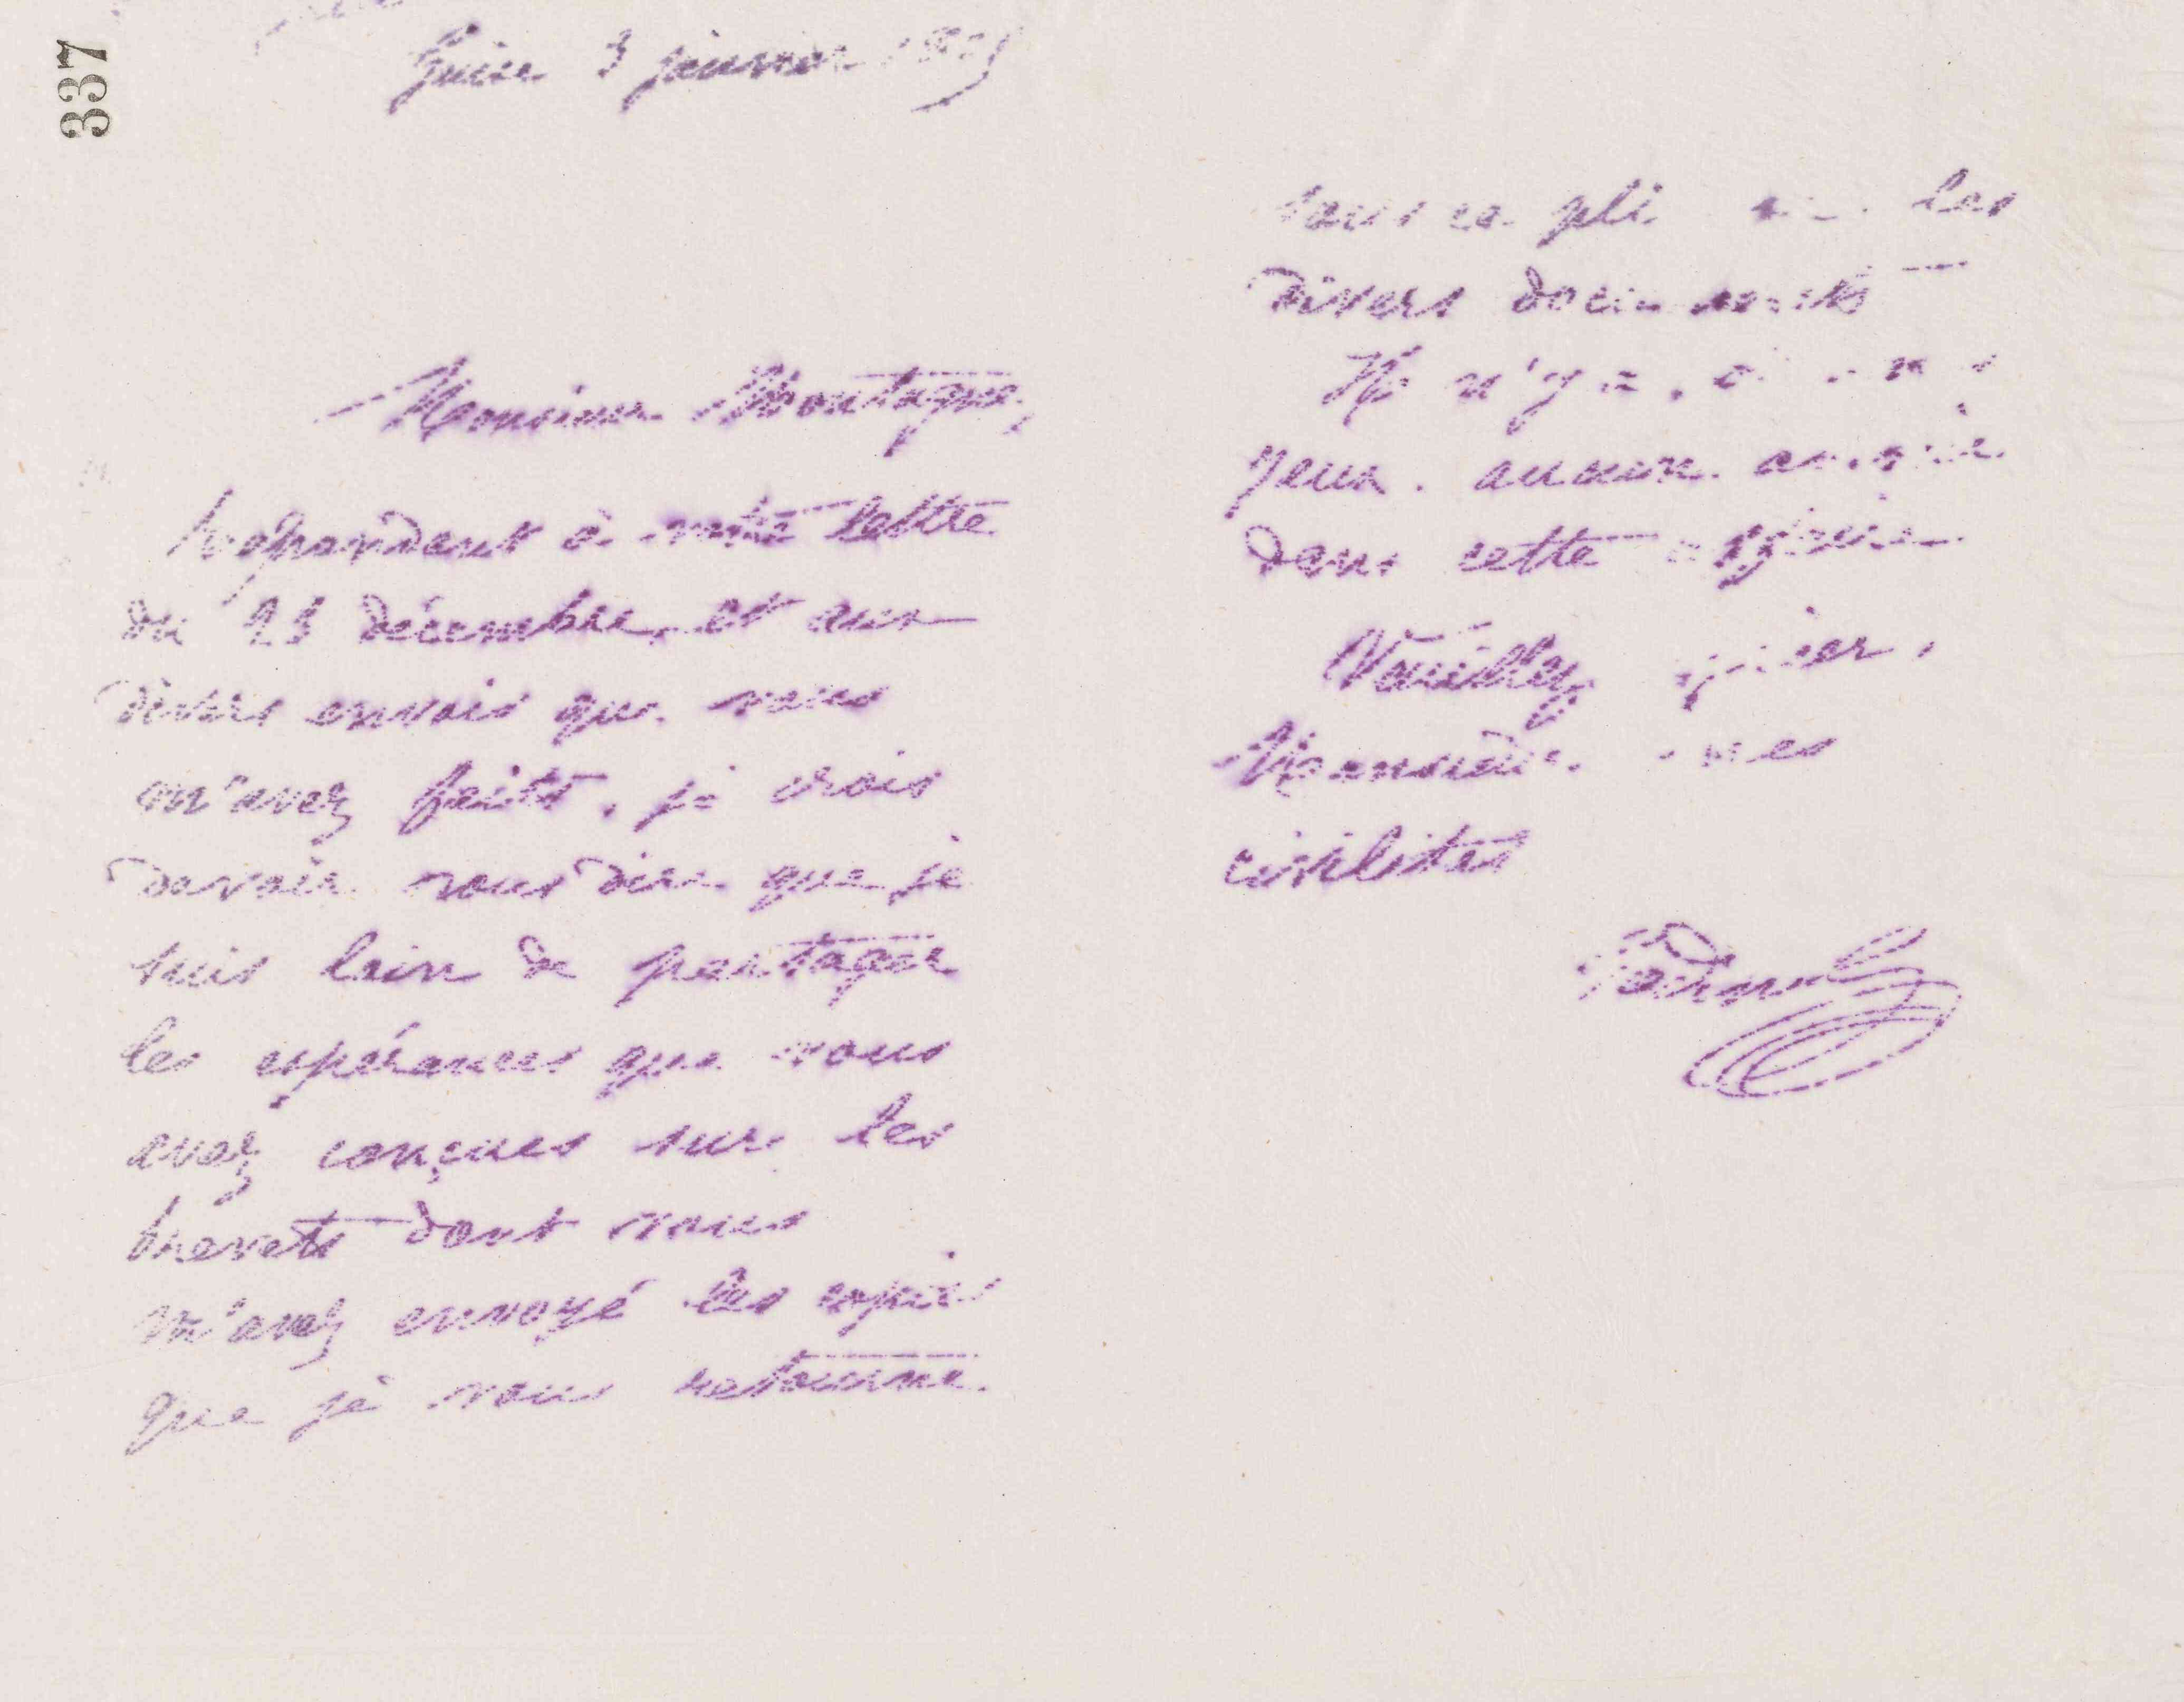 337
Guise 3 janvier
Monsieur Montagne,
Répondant à votre lettre
du 23 décembre, et aux
divers envois que vous
m'avez faits, je crois
devoir vous dire que je
suis loin de partager
les espérances que vous
avez conçues sur les
brevets dont vous
m'avez envoyé les copies
que je vous retourne
sous ce pli les
divers documents
Il n'y a
yeux aucun
dans cette affaire
Veuillez
Monsieur mes
civilités
Godin